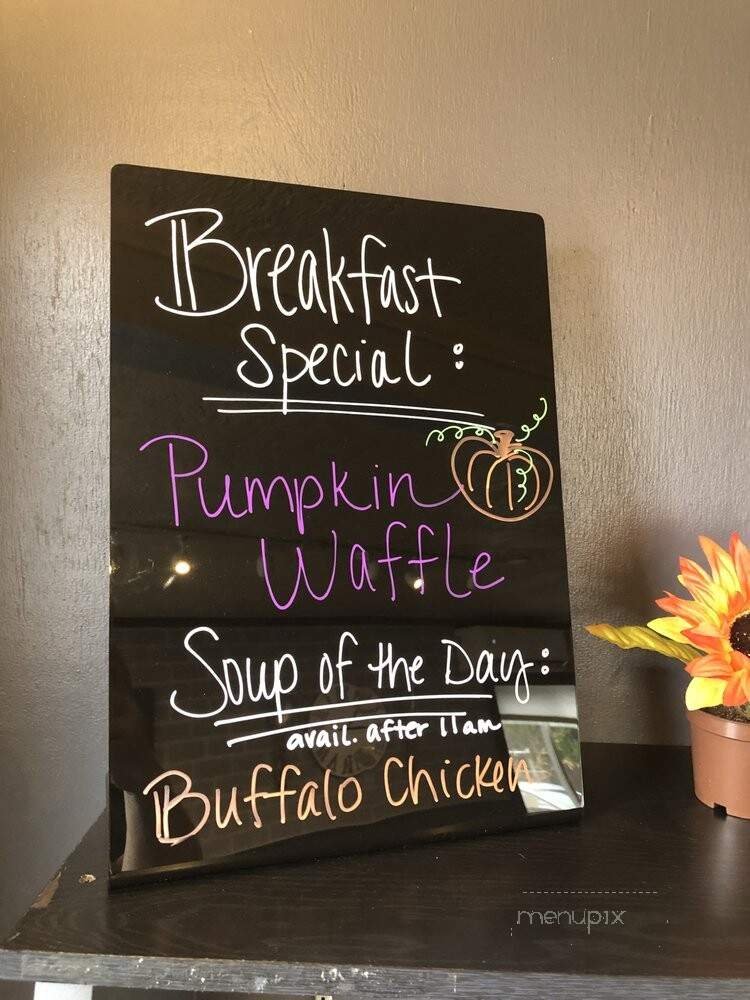 Breakfast
Special:
Pumpkin
Waffle
Soup of the Day:
avail. after 11am
Buffalo Chicken
menupix